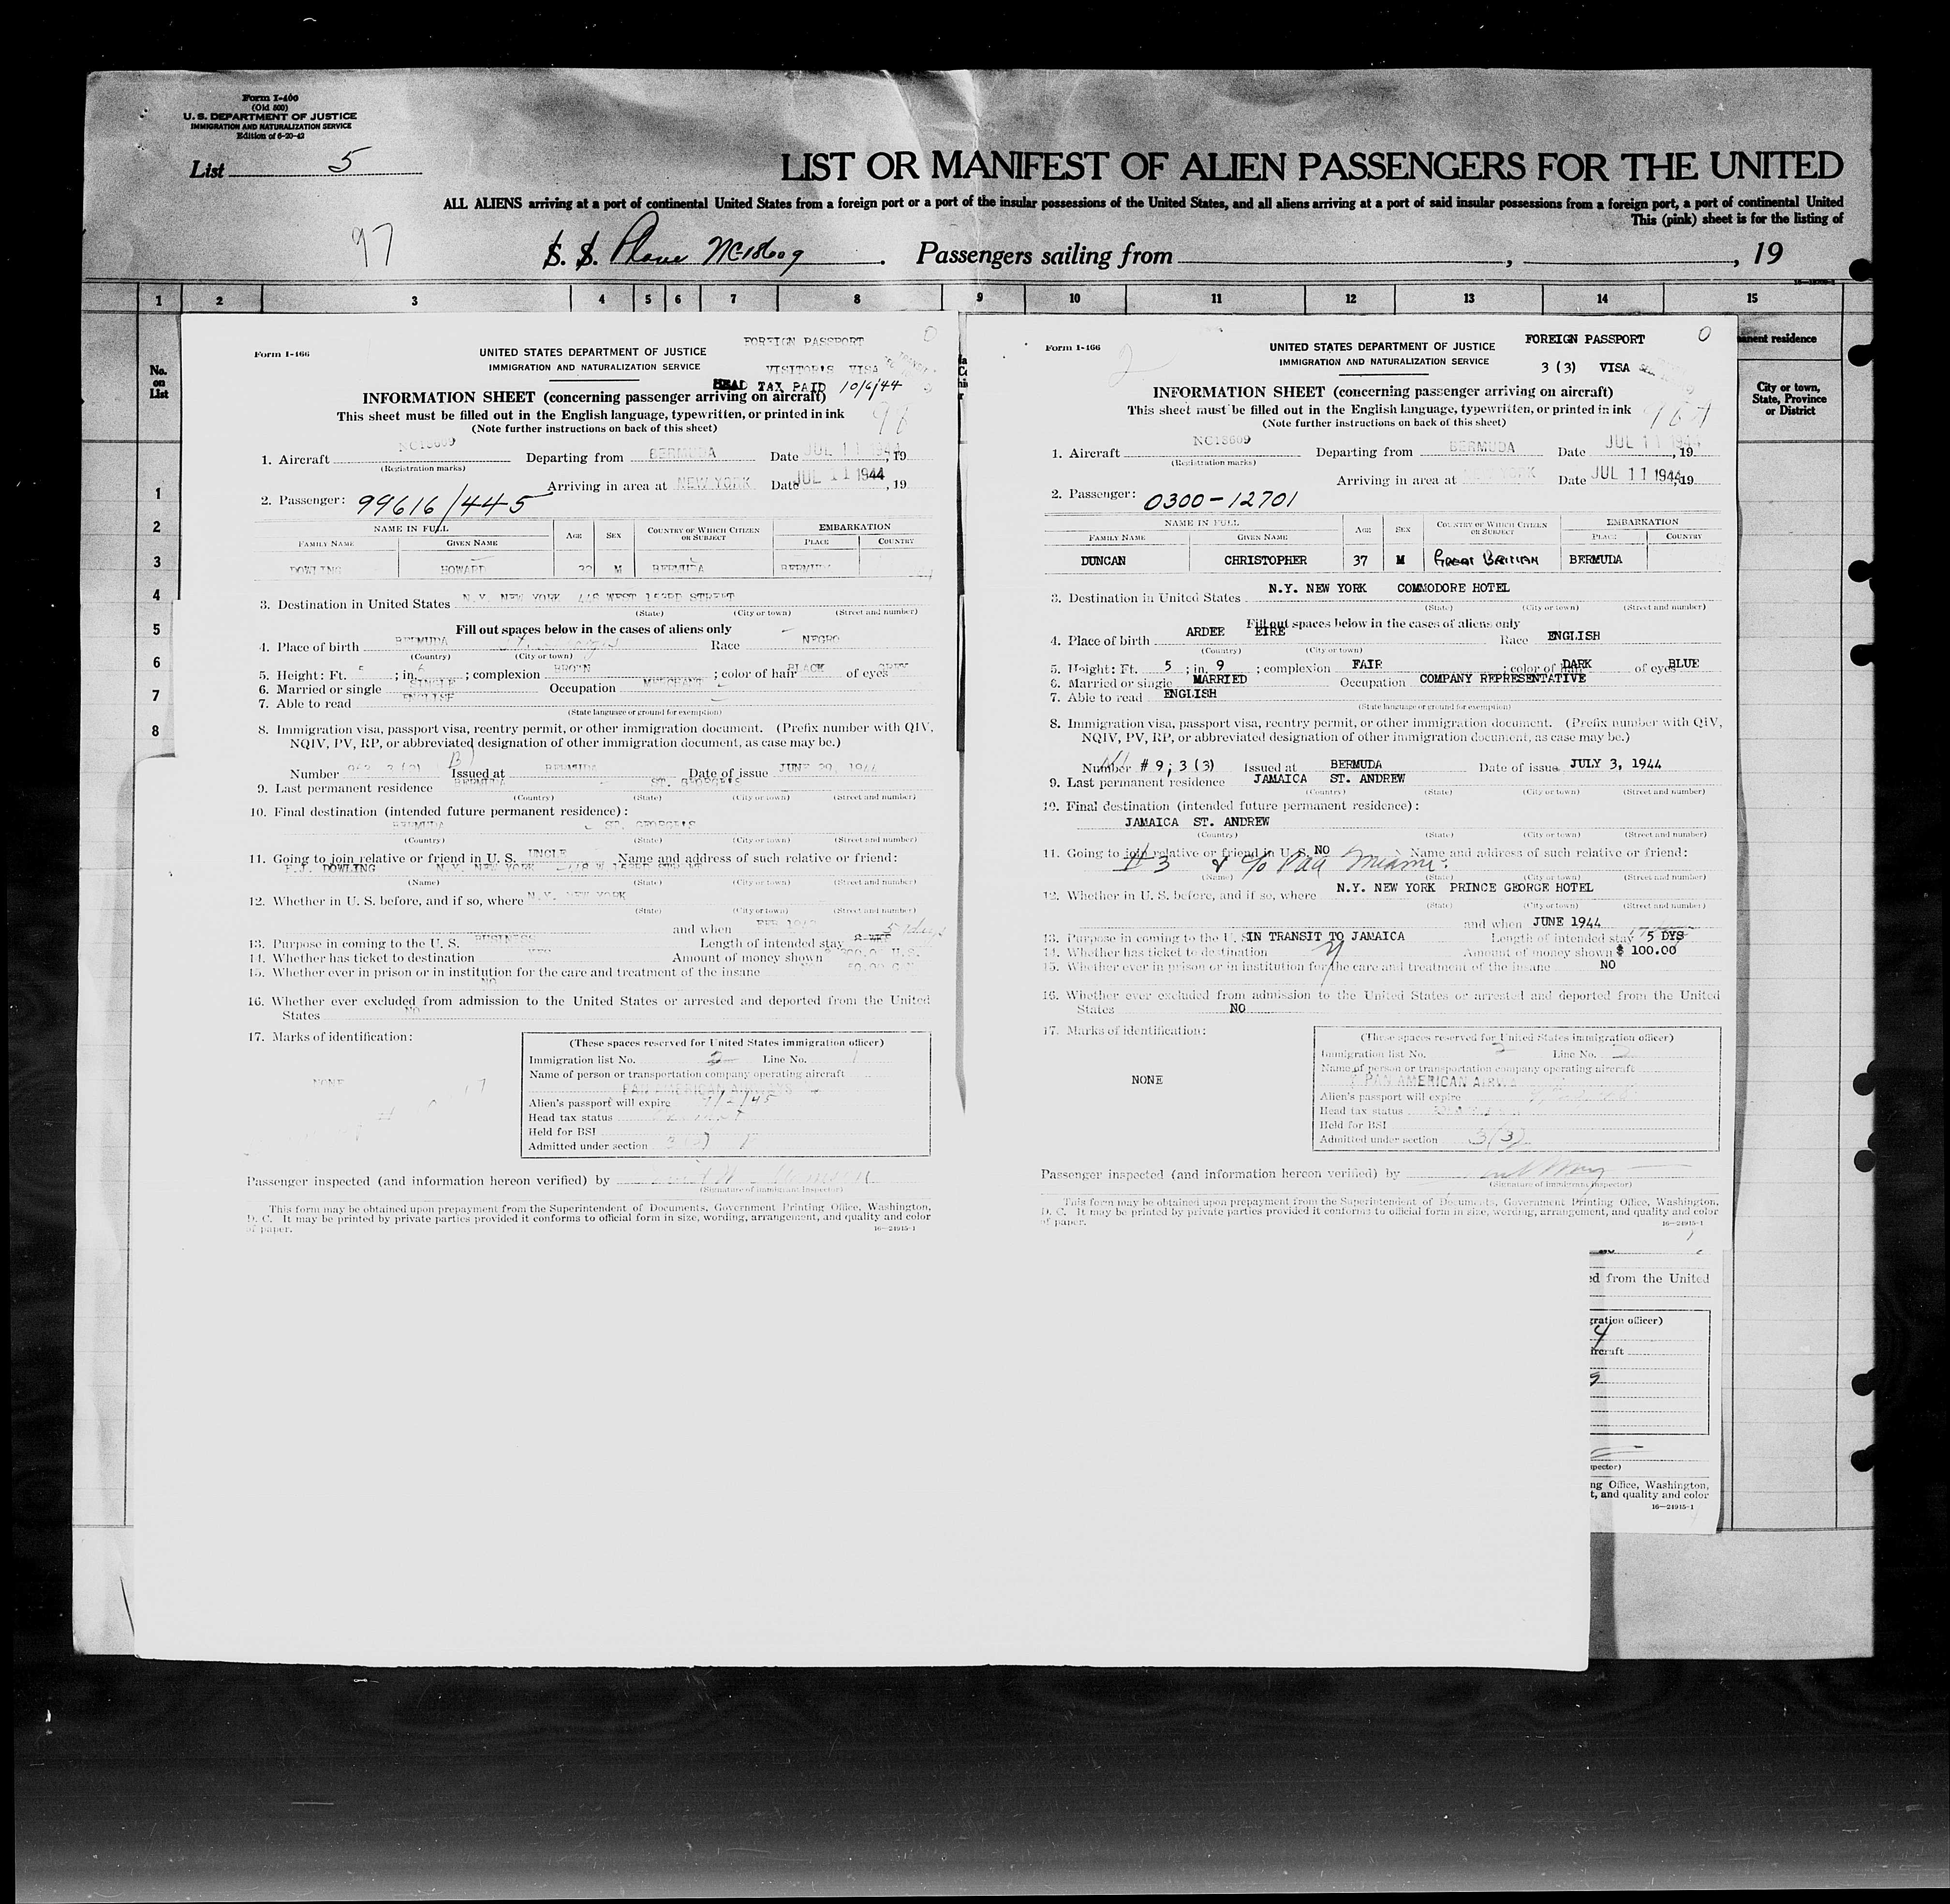 Form I-466
(Old 500)
U. S. DEPARTMENT OF JUSTICE
IMMIGRATION AND NATURALIZATION SERVICE
Edition of 6-20-42
List 5
LIST OR MANIFEST OF ALIEN PASSENGERS FOR THE UNITED
ALL ALIENS arriving at a port of continental United States from a foreign port or a port of the insular possessions of the United States, and all aliens arriving at a port of said insular possessions from a foreign port, a port of continental United
This (pink) sheet is for the listing of
97
S. S. Plane NC18609. Passengers sailing from , , 19
1 2 3 4 5 6 7 8 9 10 11 12 13 14 15
No. on List
1
2
3
4
5
6
7
8
Form I-466
UNITED STATES DEPARTMENT OF JUSTICE
IMMIGRATION AND NATURALIZATION SERVICE
FOREIGN PASSPORT
VISITOR'S VISA
HEAD TAX PAID 10/6/44
INFORMATION SHEET (concerning passenger arriving on aircraft)
This sheet must be filled out in the English language, typewritten, or printed in ink
(Note further instructions on back of this sheet)
1. Aircraft NC18609 Departing from BERMUDA Date JUL 11 1944, 19
(Registration marks)
Arriving in area at NEW YORK Date JUL 11 1944, 19
2. Passenger: 99616/445
NAME IN FULL AGE SEX COUNTRY OF WHICH CITIZEN OR SUBJECT EMBARKATION
FAMILY NAME GIVEN NAME PLACE COUNTRY
DOWLING HOWARD M BERMUDA BERMUDA
3. Destination in United States N.Y. NEW YORK 448 WEST 153RD STREET
(State) (City or town) (Street and number)
Fill out spaces below in the cases of aliens only
4. Place of birth BERMUDA St. Georges Race NEGRO
(Country) (City or town)
5. Height: Ft. 5 ; in. 6 ; complexion BROWN ; color of hair BLACK of eyes GREY
6. Married or single SINGLE Occupation MERCHANT
7. Able to read ENGLISH
(State language or ground for exemption)
8. Immigration visa, passport visa, reentry permit, or other immigration document. (Prefix number with QIV,
NQIV, PV, RP, or abbreviated designation of other immigration document, as case may be.)
Number Issued at BERMUDA Date of issue JUNE 29, 1944
9. Last permanent residence BERMUDA ST. GEORGE'S
(Country) (State) (City or town) (Street and number)
10. Final destination (intended future permanent residence):
BERMUDA ST. GEORGE'S
(Country) (State) (City or town) (Street and number)
11. Going to join relative or friend in U. S. UNCLE Name and address of such relative or friend:
DOWLING N.Y. NEW YORK 448 W 153RD STREET
(Name) (State) (City or town) (Street and number)
12. Whether in U. S. before, and if so, where N.Y. NEW YORK
(State) (City or town) (Street and number)
and when FEB
13. Purpose in coming to the U. S. BUSINESS Length of intended stay
14. Whether has ticket to destination YES Amount of money shown
15. Whether ever in prison or in institution for the care and treatment of the insane
NO
16. Whether ever excluded from admission to the United States or arrested and deported from the United
States NO
17. Marks of identification:
NONE
(These spaces reserved for United States immigration officer)
Immigration list No. 2 Line No. 1
Name of person or transportation company operating aircraft
PAN AMERICAN AIRWAYS
Alien's passport will expire
Head tax status
Held for BSI
Admitted under section
Passenger inspected (and information hereon verified) by
(Signature of immigrant inspector)
This form may be obtained upon prepayment from the Superintendent of Documents, Government Printing Office, Washington,
D. C. It may be printed by private parties provided it conforms to official form in size, wording, arrangement, and quality and color
of paper.
16—24915-1
Form I-466
UNITED STATES DEPARTMENT OF JUSTICE
IMMIGRATION AND NATURALIZATION SERVICE
FOREIGN PASSPORT
3 (3) VISA
2
INFORMATION SHEET (concerning passenger arriving on aircraft)
This sheet must be filled out in the English language, typewritten, or printed in ink
(Note further instructions on back of this sheet)
1. Aircraft NC18609 Departing from BERMUDA Date JUL 11 1944, 19
(Registration marks)
Arriving in area at NEW YORK Date JUL 11 1944, 19
2. Passenger: 0300-12701
NAME IN FULL AGE SEX COUNTRY OF WHICH CITIZEN OR SUBJECT EMBARKATION
FAMILY NAME GIVEN NAME PLACE COUNTRY
DUNCAN CHRISTOPHER 37 M Great Britian BERMUDA
3. Destination in United States N.Y. NEW YORK COMMODORE HOTEL
(State) (City or town) (Street and number)
Fill out spaces below in the cases of aliens only
4. Place of birth ARDEE EIRE Race ENGLISH
(Country) (City or town)
5. Height: Ft. 5 ; in. 9 ; complexion FAIR ; color of hair DARK of eyes BLUE
6. Married or single MARRIED Occupation COMPANY REPRESENTATIVE
7. Able to read ENGLISH
(State language or ground for exemption)
8. Immigration visa, passport visa, reentry permit, or other immigration document. (Prefix number with QIV,
NQIV, PV, RP, or abbreviated designation of other immigration document, as case may be.)
Number # 9; 3 (3) Issued at BERMUDA Date of issue JULY 3, 1944
9. Last permanent residence JAMAICA ST. ANDREW
(Country) (State) (City or town) (Street and number)
10. Final destination (intended future permanent residence):
JAMAICA ST. ANDREW
(Country) (State) (City or town) (Street and number)
11. Going to join relative or friend in U. S. NO Name and address of such relative or friend:
# 3 & c/o Paa Miami.
(Name) (State) (City or town) (Street and number)
12. Whether in U. S. before, and if so, where N.Y. NEW YORK PRINCE GEORGE HOTEL
(State) (City or town) (Street and number)
and when JUNE 1944
13. Purpose in coming to the U. S. IN TRANSIT TO JAMAICA Length of intended stay 5 DYS
14. Whether has ticket to destination y Amount of money shown $ 100.00
15. Whether ever in prison or in institution for the care and treatment of the insane NO
16. Whether ever excluded from admission to the United States or arrested and deported from the United
States NO
17. Marks of identification:
NONE
(These spaces reserved for United States immigration officer)
Immigration list No. 2 Line No. 2
Name of person or transportation company operating aircraft
PAN AMERICAN AIRWA
Alien's passport will expire
Head tax status
Held for BSI
Admitted under section 3(3)
Passenger inspected (and information hereon verified) by
(Signature of immigrant inspector)
This form may be obtained upon prepayment from the Superintendent of Documents, Government Printing Office, Washington,
D. C. It may be printed by private parties provided it conforms to official form in size, wording, arrangement, and quality and color
of paper.
16—24915-1
anent residence
City or town, State, Province or District
ed from the United
gration officer)
4
ircraft
pector)
ng Office, Washington,
t, and quality and color
16—24915-1